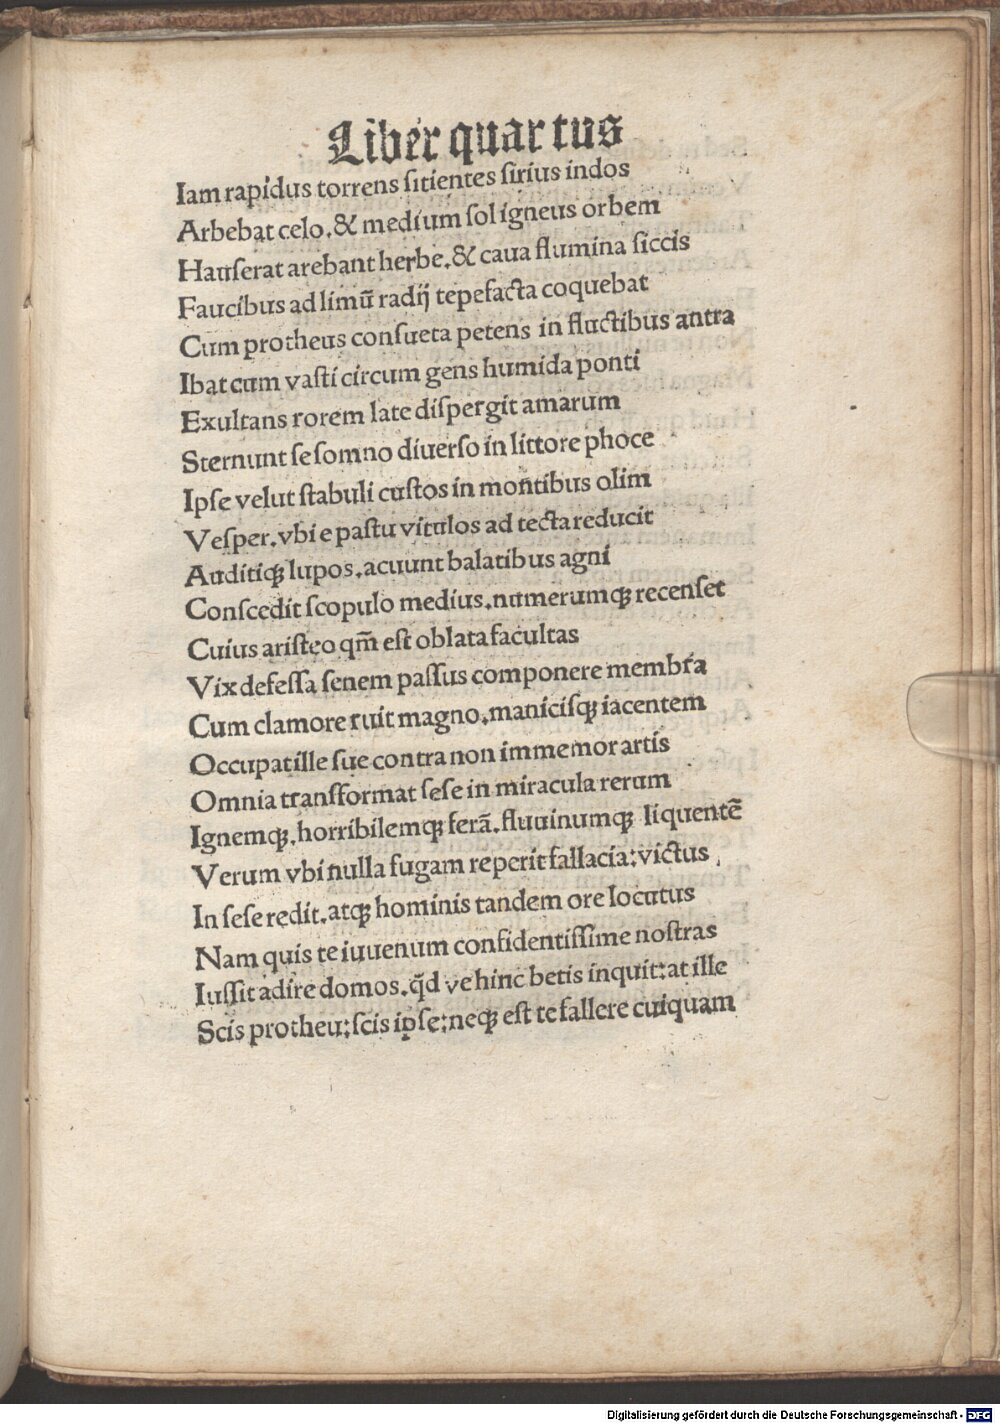 Liber quartus
Iam rapidus torrens ſitientes ſirius indos
Arbebat celo.& medium ſol igneus orbem
Hauſerat arebant herbe.& caua flumina ſiccis
Faucibus ad limū radij tepefacta coquebat
Cum protheus conſueta petens in fluctibus antra
Ibat cum vaſti circum gens humida ponti
Exultans rorem late diſpergit amarum
Sternunt ſe ſomno diuerſo in littore phoce
Ipſe velut ſtabuli cuſtos in montibus olim
Veſper.vbi e paſtu vitulos ad tecta reducit
Auditiqꝫ lupos.acuunt balatibus agni
Conſcedit ſcopulo medius.numerumqꝫ recenſet
Cuius ariſteo qm̄ eſt oblata facultas
Vix defeſſa ſenem paſſus componere membra
Cum clamore ruit magno.maniciſqꝫ iacentem
Occupat ille ſue contra non immemor artis
Omnia tranſformat ſeſe in miracula rerum
Ignemqꝫ.horribilemqꝫ ferā.fluuinumqꝫ liquentē
Verum vbi nulla fugam reperit fallacia:victus
In ſeſe redit.atqꝫ hominis tandem ore locutus
Nam quis te iuuenum confidentiſſime noſtras
Iuſſit adire domos.qd̄ ve hinc betis inquit:at ille
Scis protheu:ſcis ipſe:neqꝫ eſt te fallere cuiquam
Digitalisierung gefördert durch die Deutsche Forschungsgemeinschaft - DFG